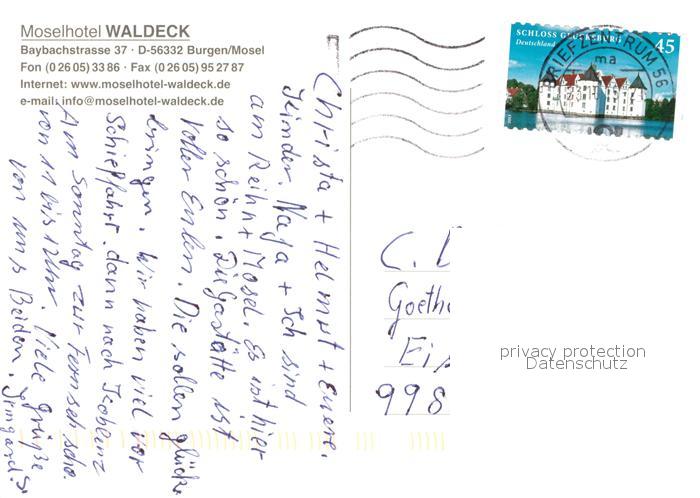 Moselhotel WALDECK
Baybachstrasse 37 · D-56332 Burgen/Mosel
Fon (0 26 05) 33 86 · Fax (0 26 05) 95 27 87
Internet: www.moselhotel-waldeck.de
e-mail: info@moselhotel-waldeck.de
Christa + Helmut + Euere
Kinder. Naja + Ich sind
am Reihn + Mosel. Es ist hier
so schön. Die Gastätte ist
voller Eulen. Die sollen glück
bringen. Wir haben viel vor
Schieffahrt. dann nach Koblenz
Am Sonntag zur Fernsehscho.
von 11 bis 12 Uhr. Viele Grüße
von uns Beiden. Irmgard S.
SCHLOSS GLÜCKSBURG 45
Deutschland
BRIEFZENTRUM 56
ma
C.
Goethe
Ei
998
privacy protection
Datenschutz